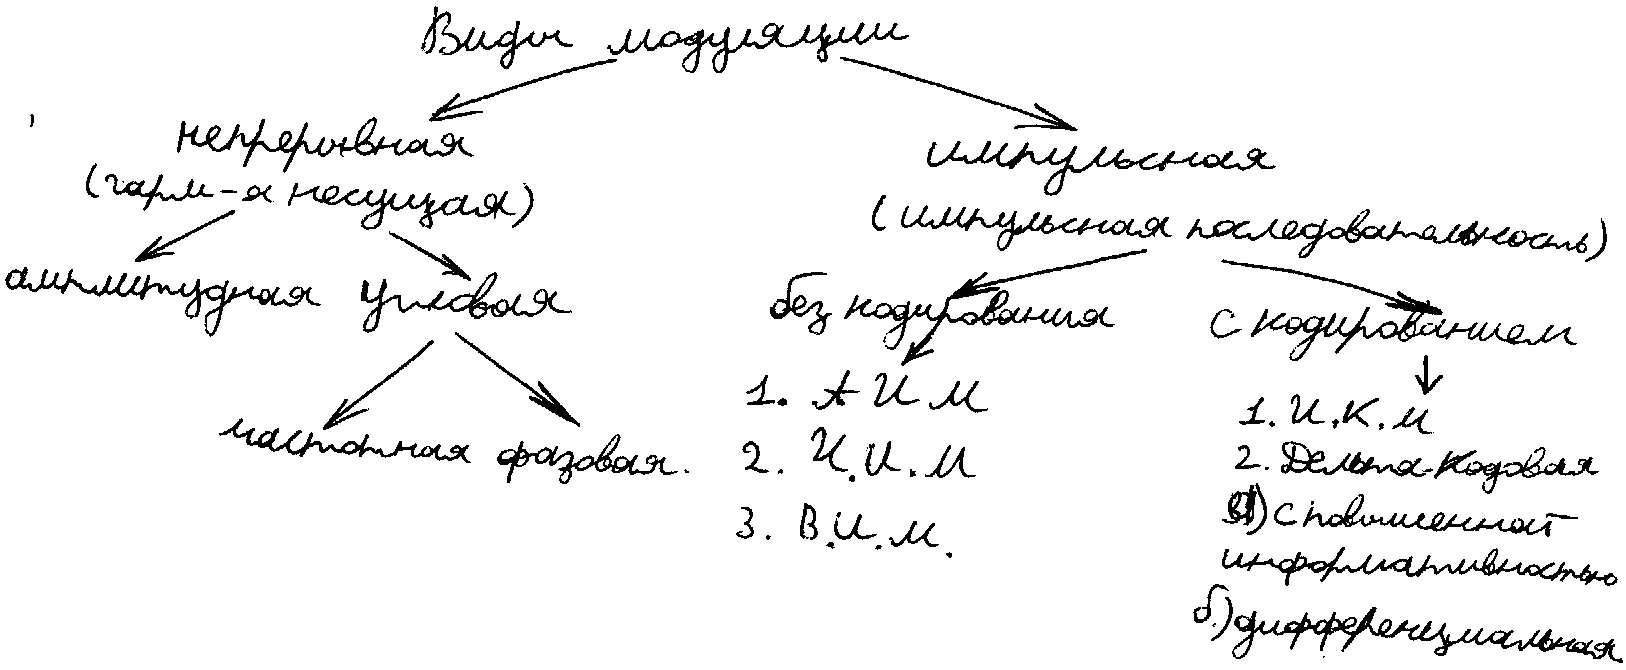 Виды модуляции
непрерывная
(гарм-я несущая)
амплитудная угловая
частотная фазовая.
импульсная
(импульсная последовательность)
без кодирования
1. АИМ
2. Ч.И.М
3. В.И.М.
с кодированием
1. И.К.М
2. Дельта-кодовая
а) с повышенной
информативностью
б.) дифференциальная